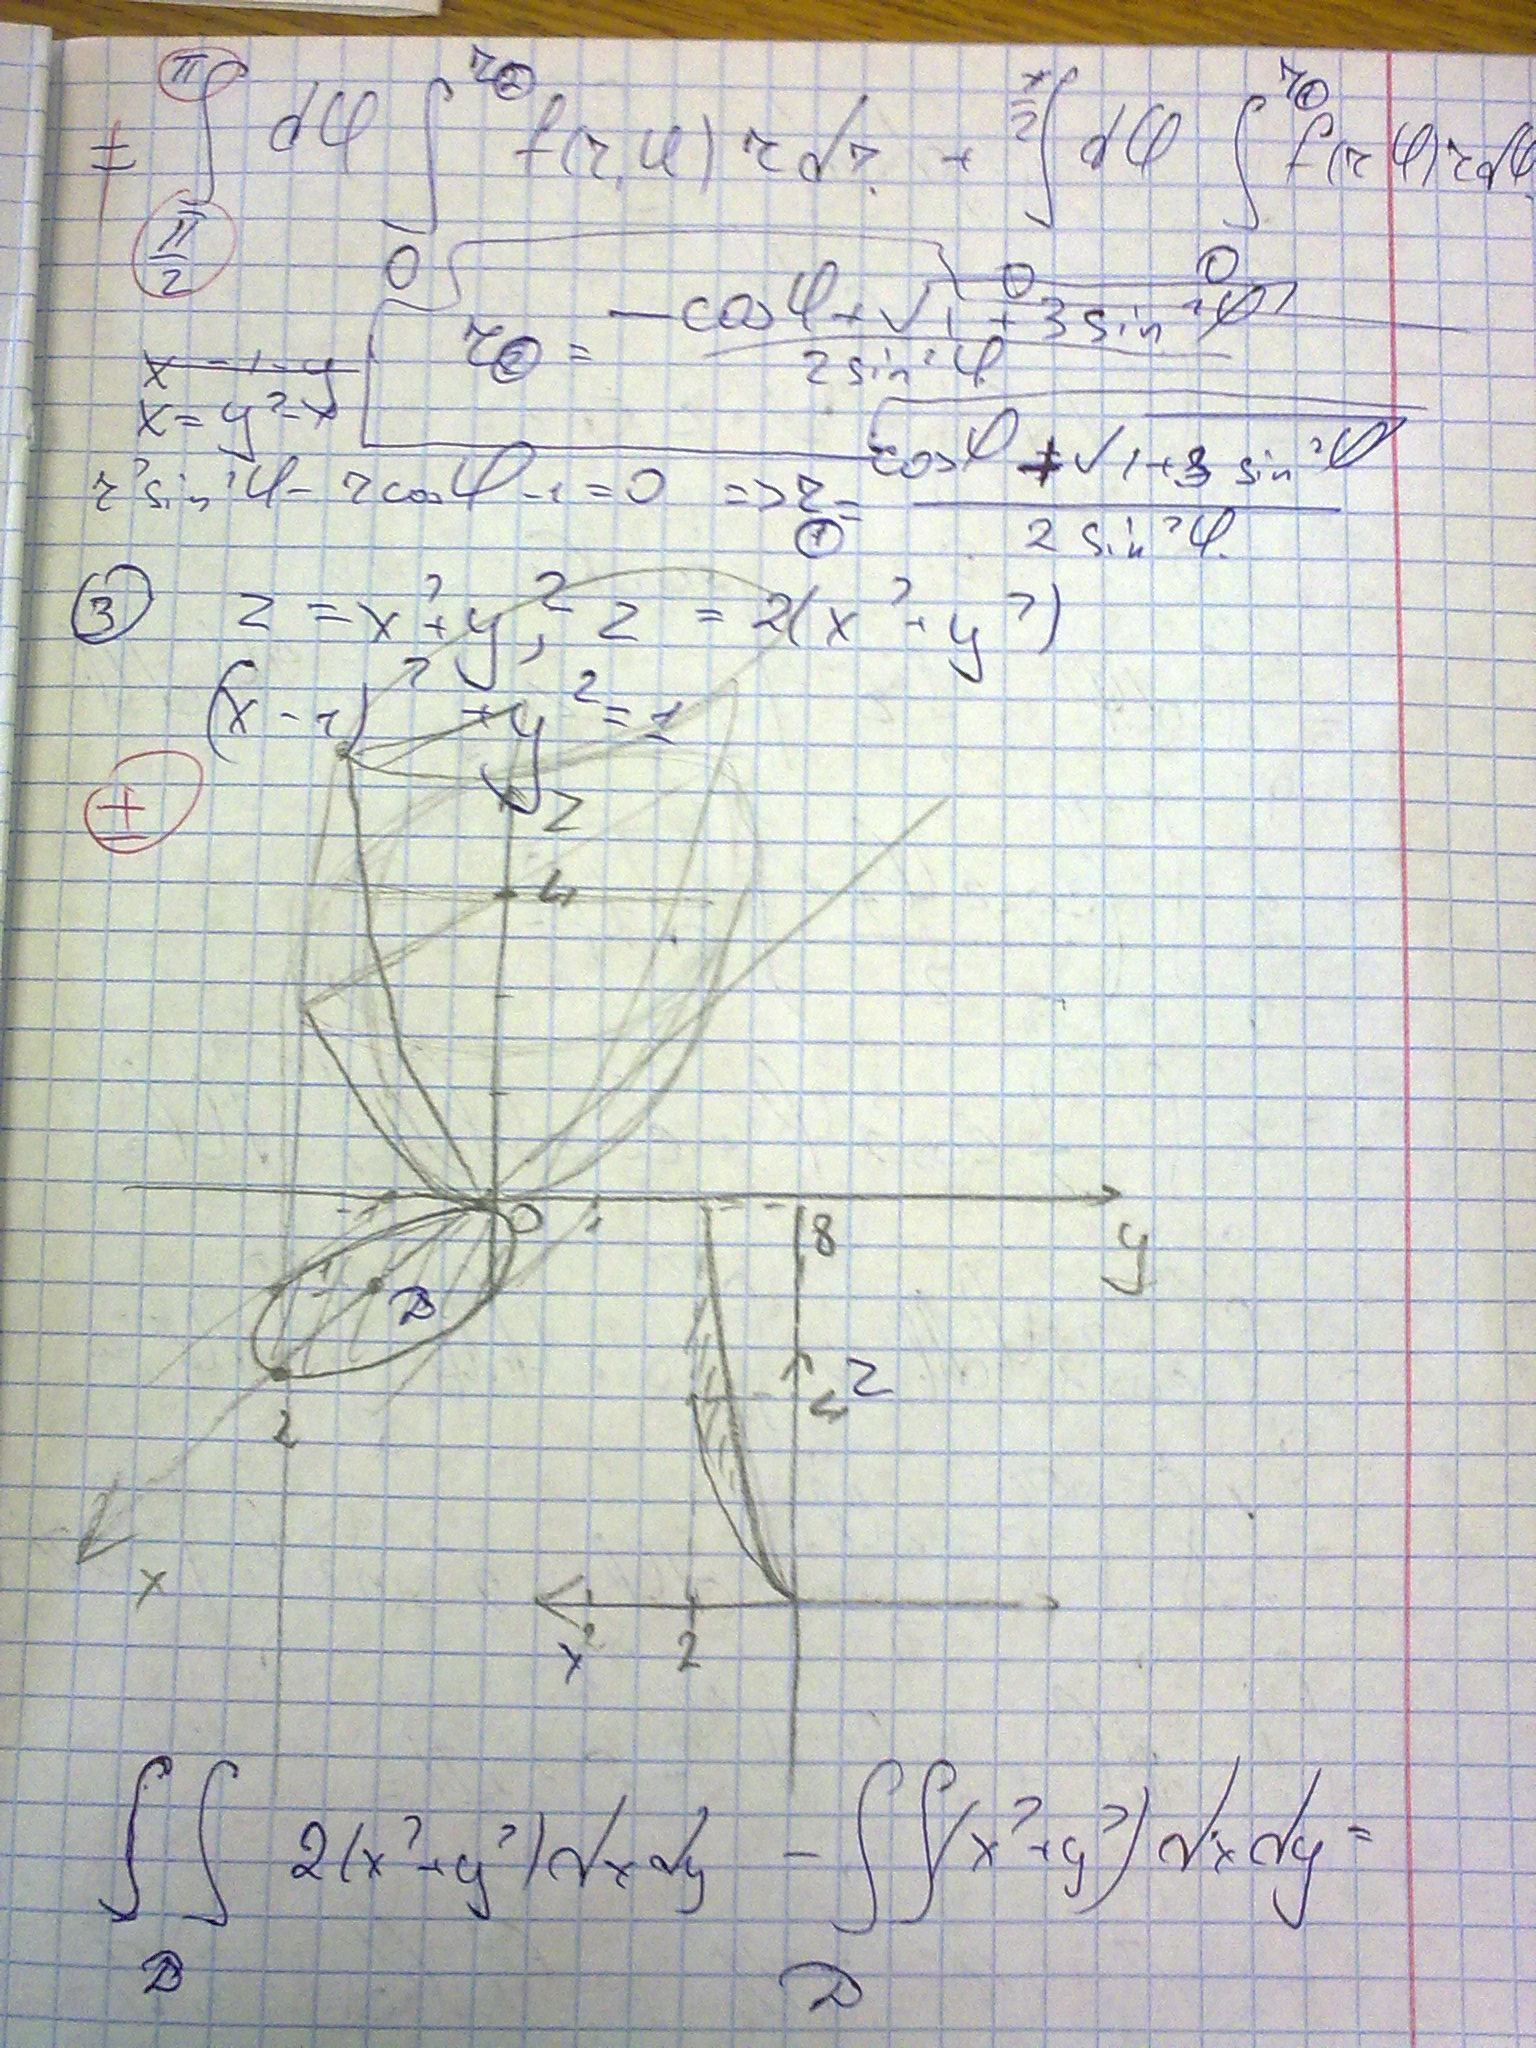 = ∫_{π/2}^{π} dφ ∫_0^{r②} f(r, φ) r dr + ∫_0^{π/2} dφ ∫_0^{r①} f(r φ) r dφ
r② = (-cosφ + √(1 + 3 sin²φ)) / (2 sin²φ)
x = y² - x
r² sin²φ - r cosφ - 1 = 0 => r① = (cosφ + √(1 + 3 sin²φ)) / (2 sin²φ)
③ z = x² + y², z = 2(x² + y²)
(x - 1)² + y² = 1
±
z
4
-1 0 1 8 y
1 D
z
4
2
x
x 2 2
∫∫_D 2(x² + y²) dx dy - ∫∫_D (x² + y²) dx dy =